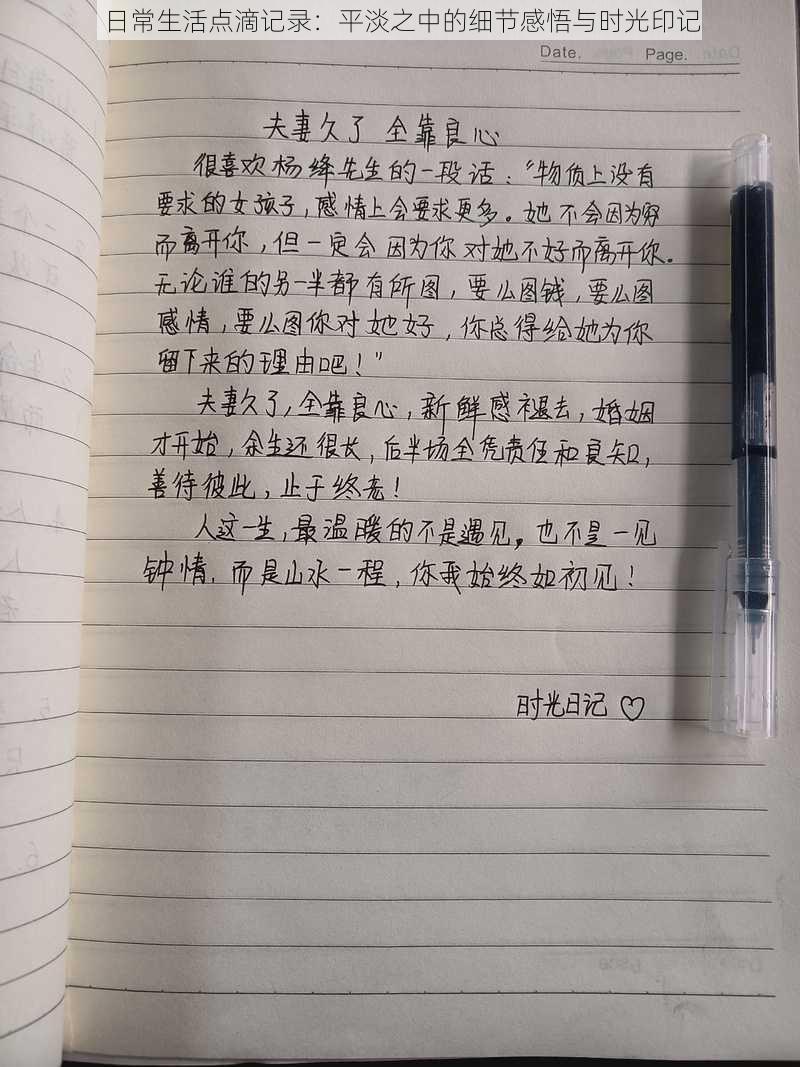 日常生活点滴记录：平淡之中的细节感悟与时光印记
Date. Page.
夫妻久了 全靠良心
很喜欢杨绛先生的一段话："物质上没有
要求的女孩子，感情上会要求更多。她不会因为穷
而离开你，但一定会因为你对她不好而离开你。
无论谁的另一半都有所图，要么图钱，要么图
感情，要么图你对她好，你总得给她为你
留下来的理由吧！"
夫妻久了，全靠良心，新鲜感褪去，婚姻
才开始，余生还很长，后半场全凭责任和良知，
善待彼此，止于终老！
人这一生，最温暖的不是遇见，也不是一见
钟情，而是山水一程，你我始终如初见！
时光日记♡